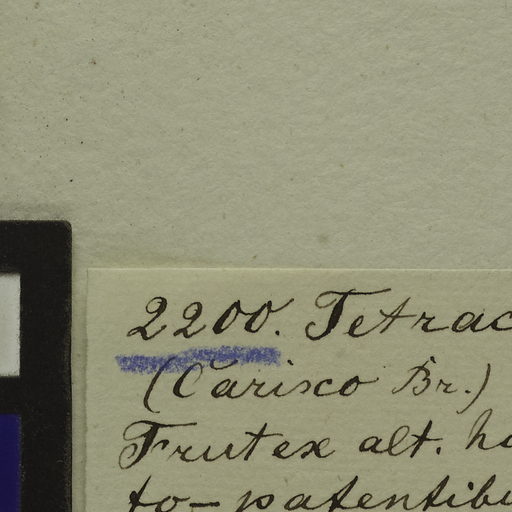 2200. Tetrac
(Carisco Br.)
Frutex alt. ho
to-patentibu